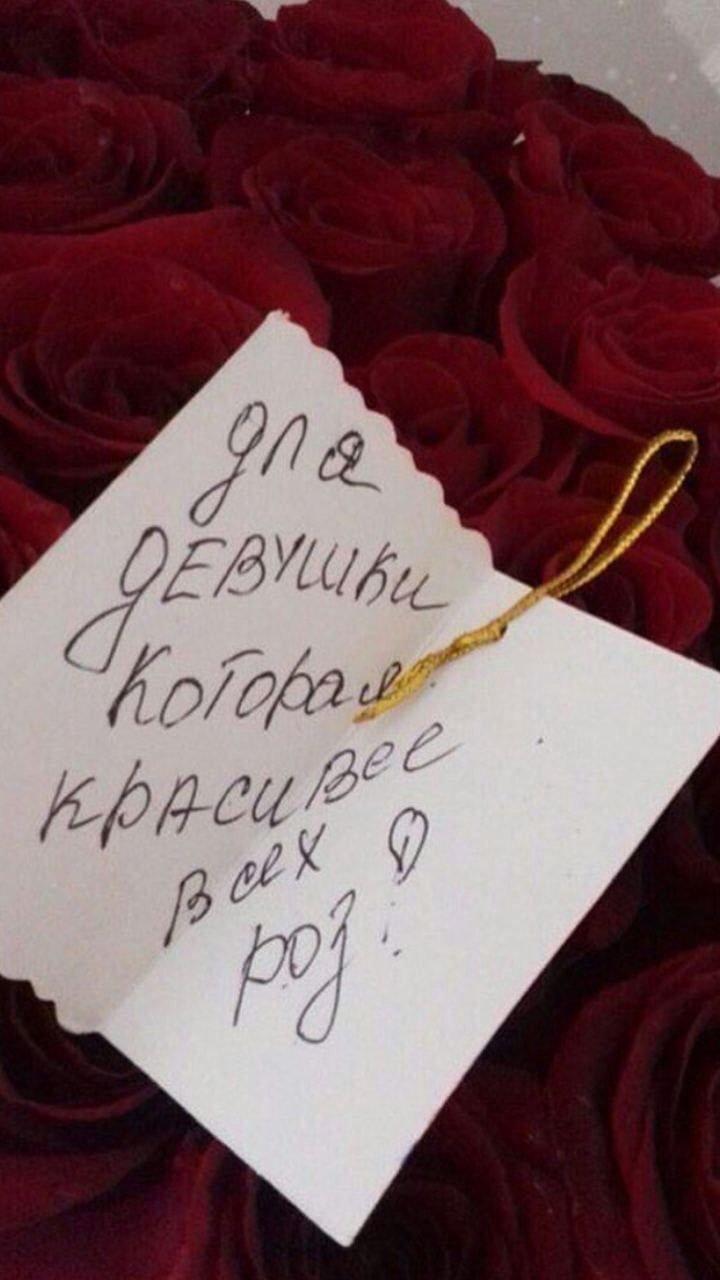 для
девушки
которая
красивее
всех
роз!